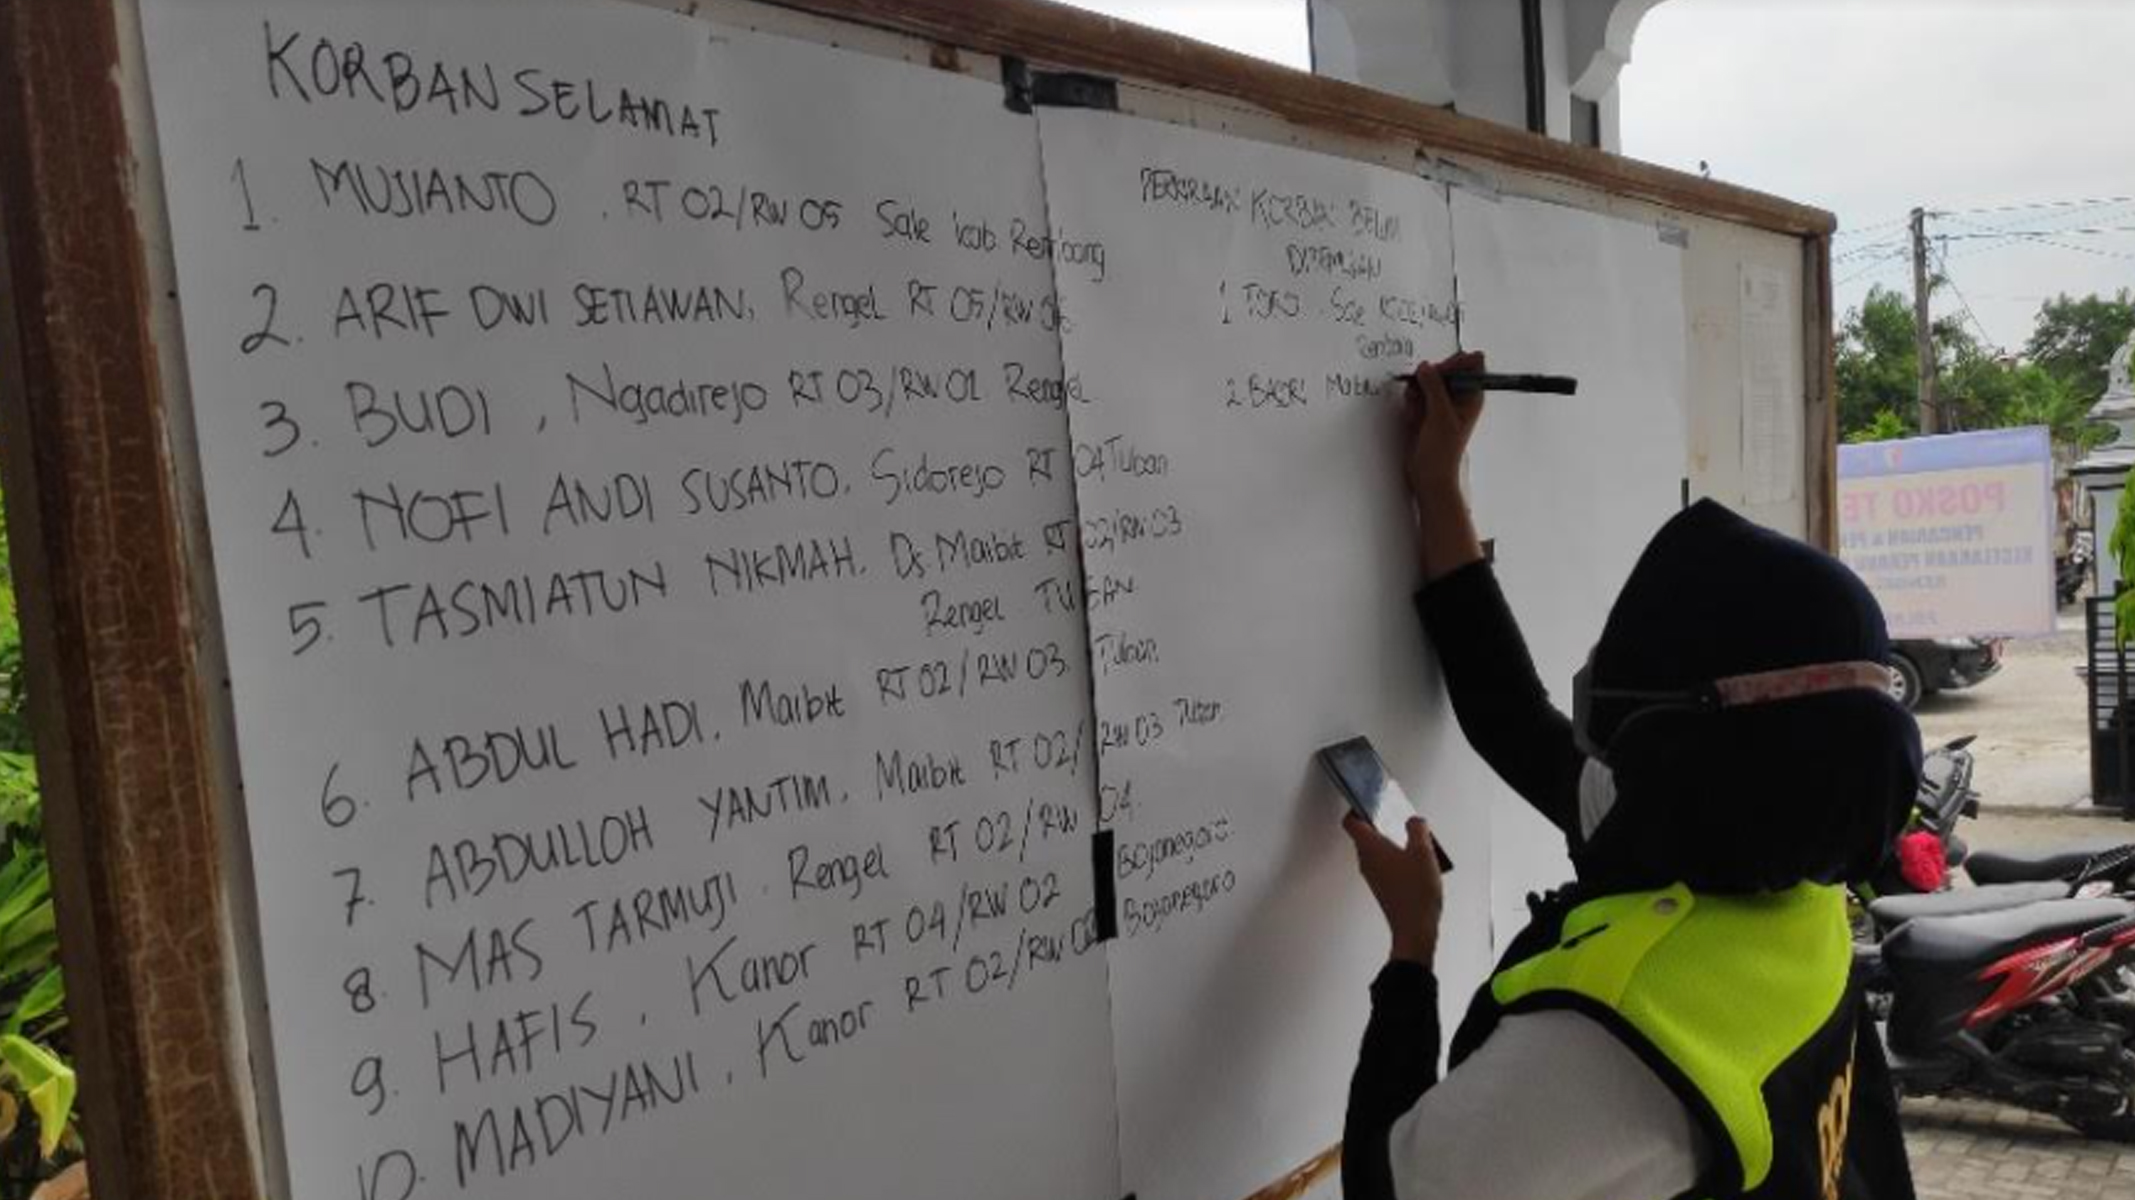 KORBAN SELAMAT
1. MUJIANTO . RT 02/RW 05 Sale kab Rembang
2. ARIF DWI SETIAWAN, Rengel RT 05/RW 06
3. BUDI , Ngadirejo RT 03/RW 01 Rengel
4. NOFI ANDI SUSANTO. Sidorejo RT 04 Tuban
5. TASMIATUN NIKMAH. Ds Maibit RT 02/RW 03
Rengel TUBAN
6. ABDUL HADI. Maibit RT 02/RW 03 Tuban
7. ABDULLOH YANTIM. Maibit RT 02/RW 03 Tuban
8. MAS TARMUJI. Rengel RT 02/RW 04.
9. HAFIS , Kanor RT 04/RW 02 Bojonegoro.
10. MADIYANI , Kanor RT 02/RW 02 Bojonegoro
PERKIRAAN KORBAN BELUM
DITEMUKAN
1 TORO . Sale
Rembang
2 BASRI
POSKO TE
PENCARIAN & PEN
KECELAKAAN PERAHU
POL